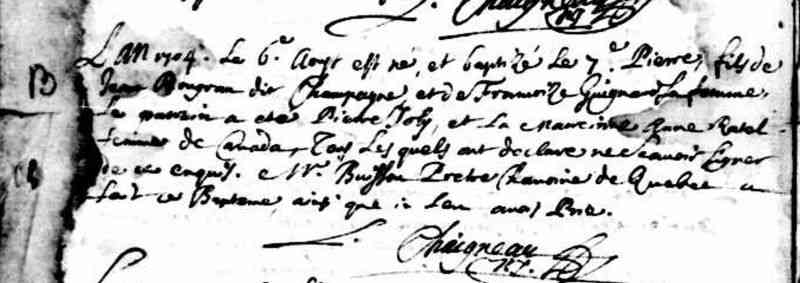 L. Chaigneau
B L'AN 1704. Le 6e Aoust est né, et baptizé Le 7e. Pierre, fils de
Jean Bougran dit Champagne et de Francoize Guignard sa femme,
Le parrin a eté Pierre Joly, et La Marenne Anne
de Canada, Tous Lesquels ont declaré ne scavoir signer
de ce enquis. Mr. Buisson Pretre Chanoine de Quebec a
fait ce Bapteme ainsi que je l'en avois Prié.
L. Chaigneau